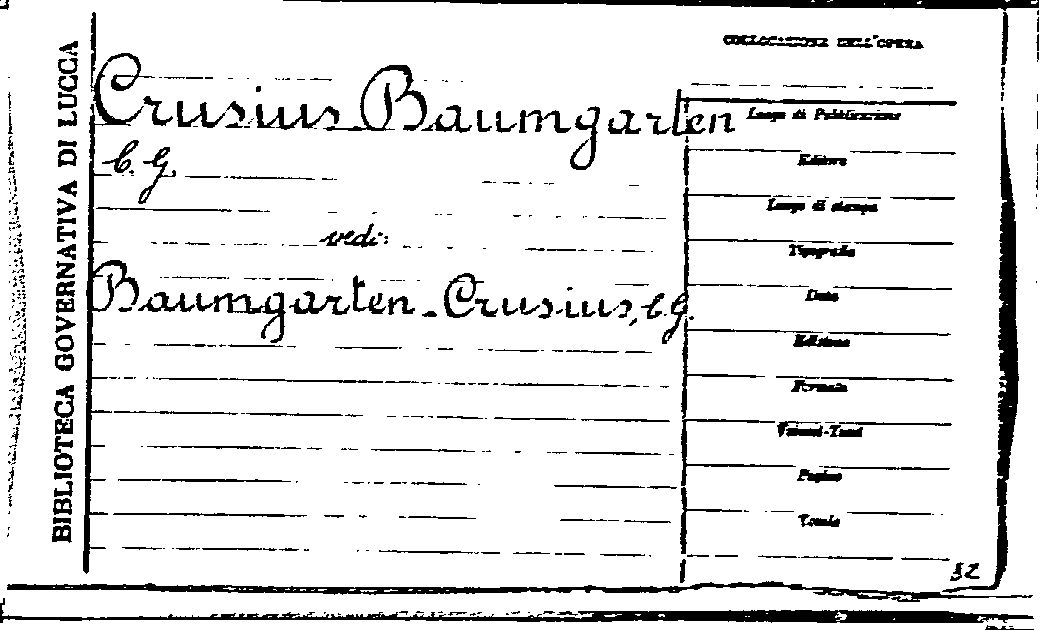 BIBLIOTECA GOVERNATIVA DI LUCCA
COLLOCAZIONE DELL'OPERA
Crusius Baumgarten
C. G.
vedi:
Baumgarten-Crusius, C. G.
Luogo di Pubblicazione
Editore
Luogo di stampa
Tipografia
Data
Edizione
Formato
Volumi-Tomi
Pagine
Tavole
32